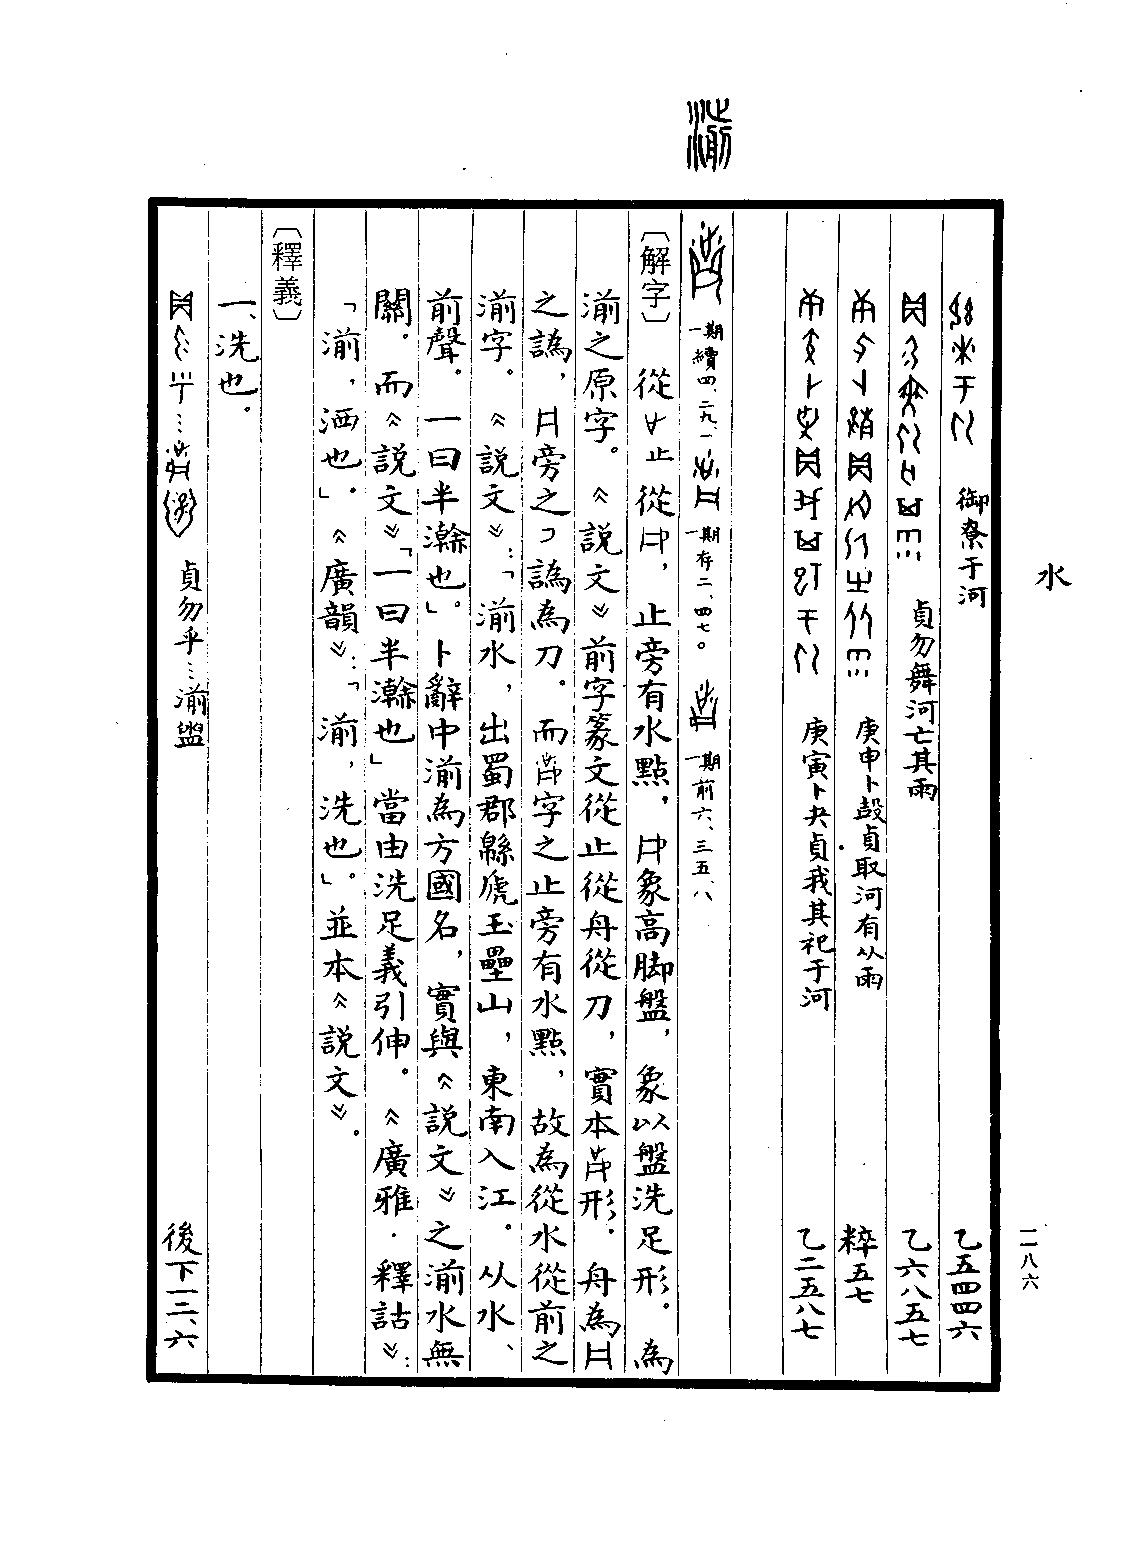 水
一一八六
御尞于河 乙五四四六
貞勿舞河亡其雨 乙六八五七
庚申卜㱿貞取河有从雨 粹五七
庚寅卜夬貞我其祀于河 乙二五八七
湔
一期續四、二九、一 一期存二、四七。 一期前六、三五、八
〔解字〕從止從，止旁有水點，象高脚盤，象以盤洗足形。為
湔之原字。《說文》前字篆文從止從舟從刀，實本形。舟為
之譌，旁之譌為刀。而字之止旁有水點，故為從水從前之
湔字。《說文》：「湔水，出蜀郡緜虒玉壘山，東南入江。从水、
前聲。一曰半澣也」。卜辭中湔為方國名，實與《說文》之湔水無
關。而《說文》「一曰半澣也」當由洗足義引伸。《廣雅·釋詁》：
「湔，洒也」。《廣韻》：「湔，洗也」。並本《說文》。
〔釋義〕
一、洗也。
貞勿乎…湔 後下一二、六